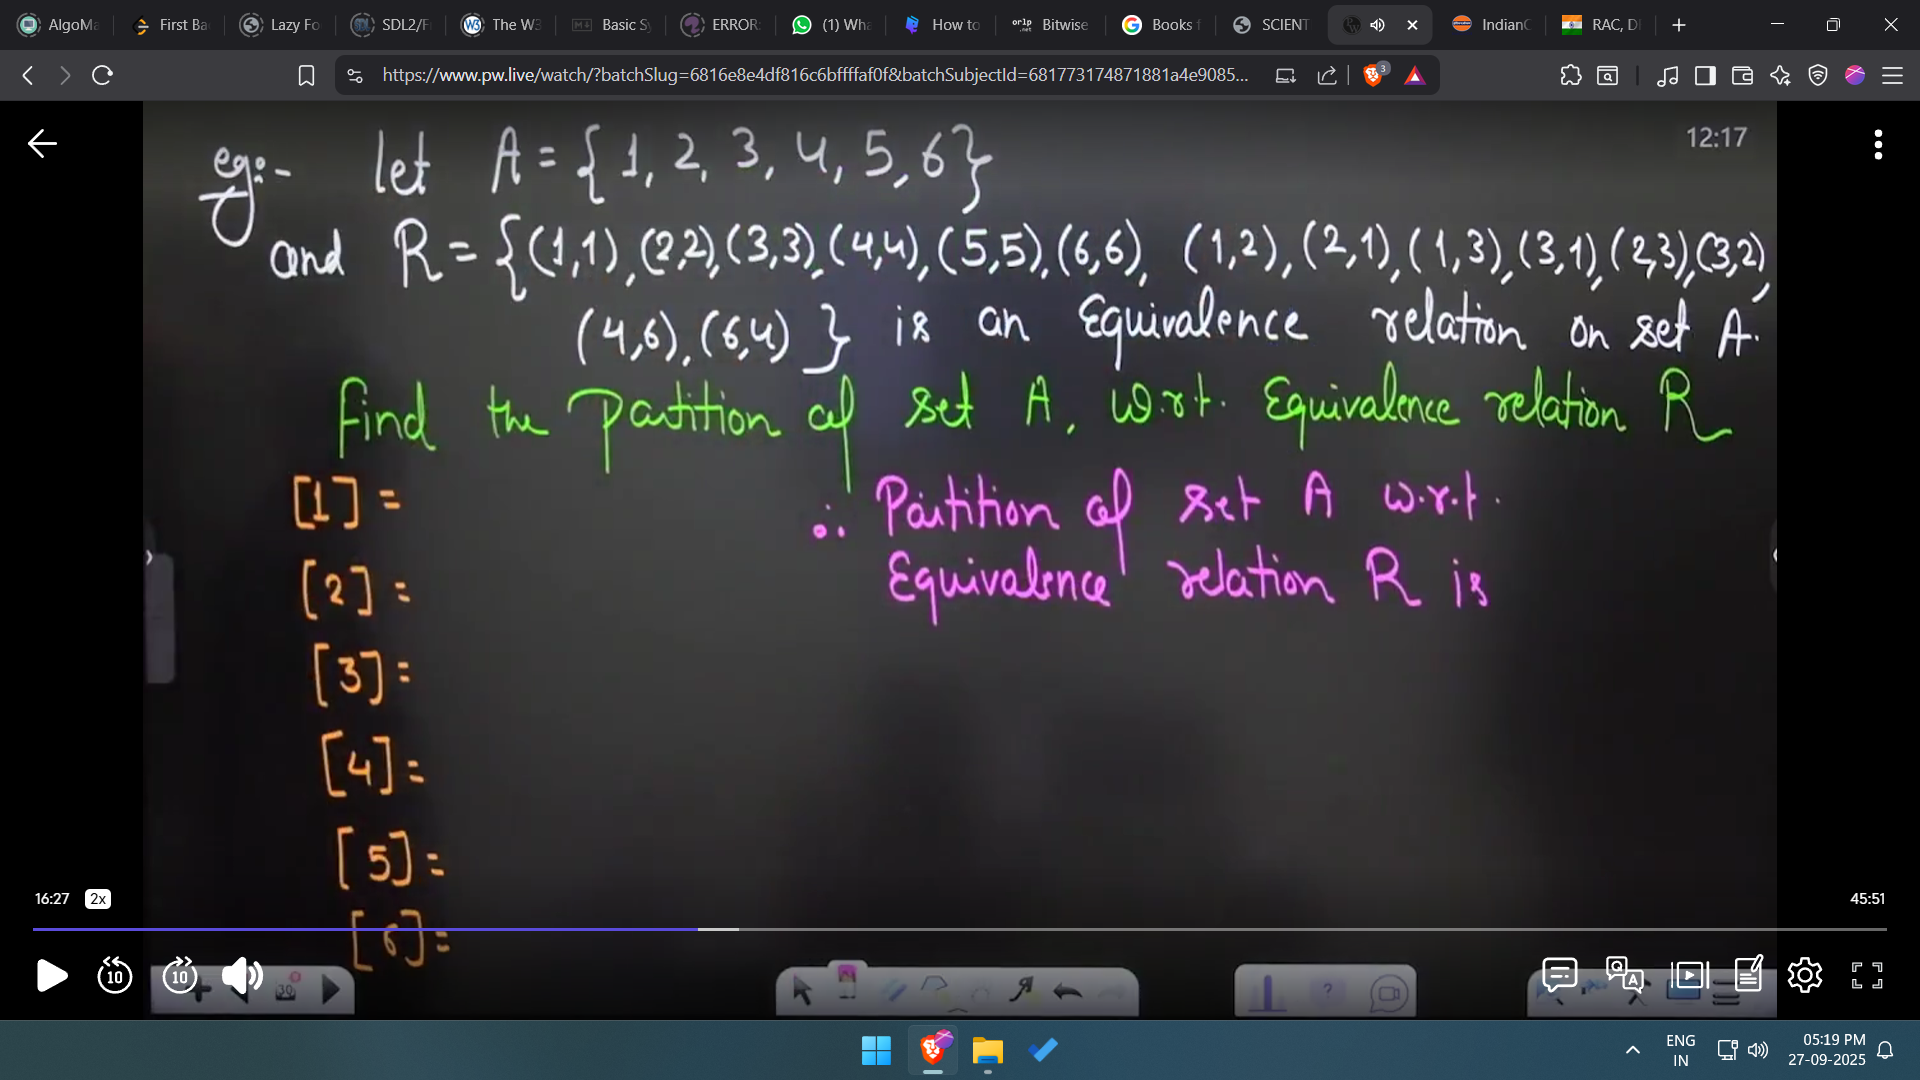 AlgoMa
First Ba
Lazy Fo
SDL2/F
The W3
Basic Sy
ERROR:
(1) Wha
How to
Bitwise
Books f
SCIENT
IndianC
RAC, DI
https://www.pw.live/watch/?batchSlug=6816e8e4df816c6bffffaf0f&batchSubjectId=681773174871881a4e9085...
3
12:17
eg:- let A = { 1, 2, 3, 4, 5, 6}
and R = {(1,1), (2,2), (3,3), (4,4), (5,5), (6,6), (1,2), (2,1), (1,3), (3,1), (2,3), (3,2),
(4,6), (6,4) } is an Equivalence relation on set A.
Find the Partition of set A, w.r.t. Equivalence relation R
[1] =
[2] =
[3] =
[4] =
[5] =
[6] =
∴ Partition of set A w.r.t.
Equivalence relation R is
16:27 2x
45:51
10 10
30
ENG
IN
05:19 PM
27-09-2025